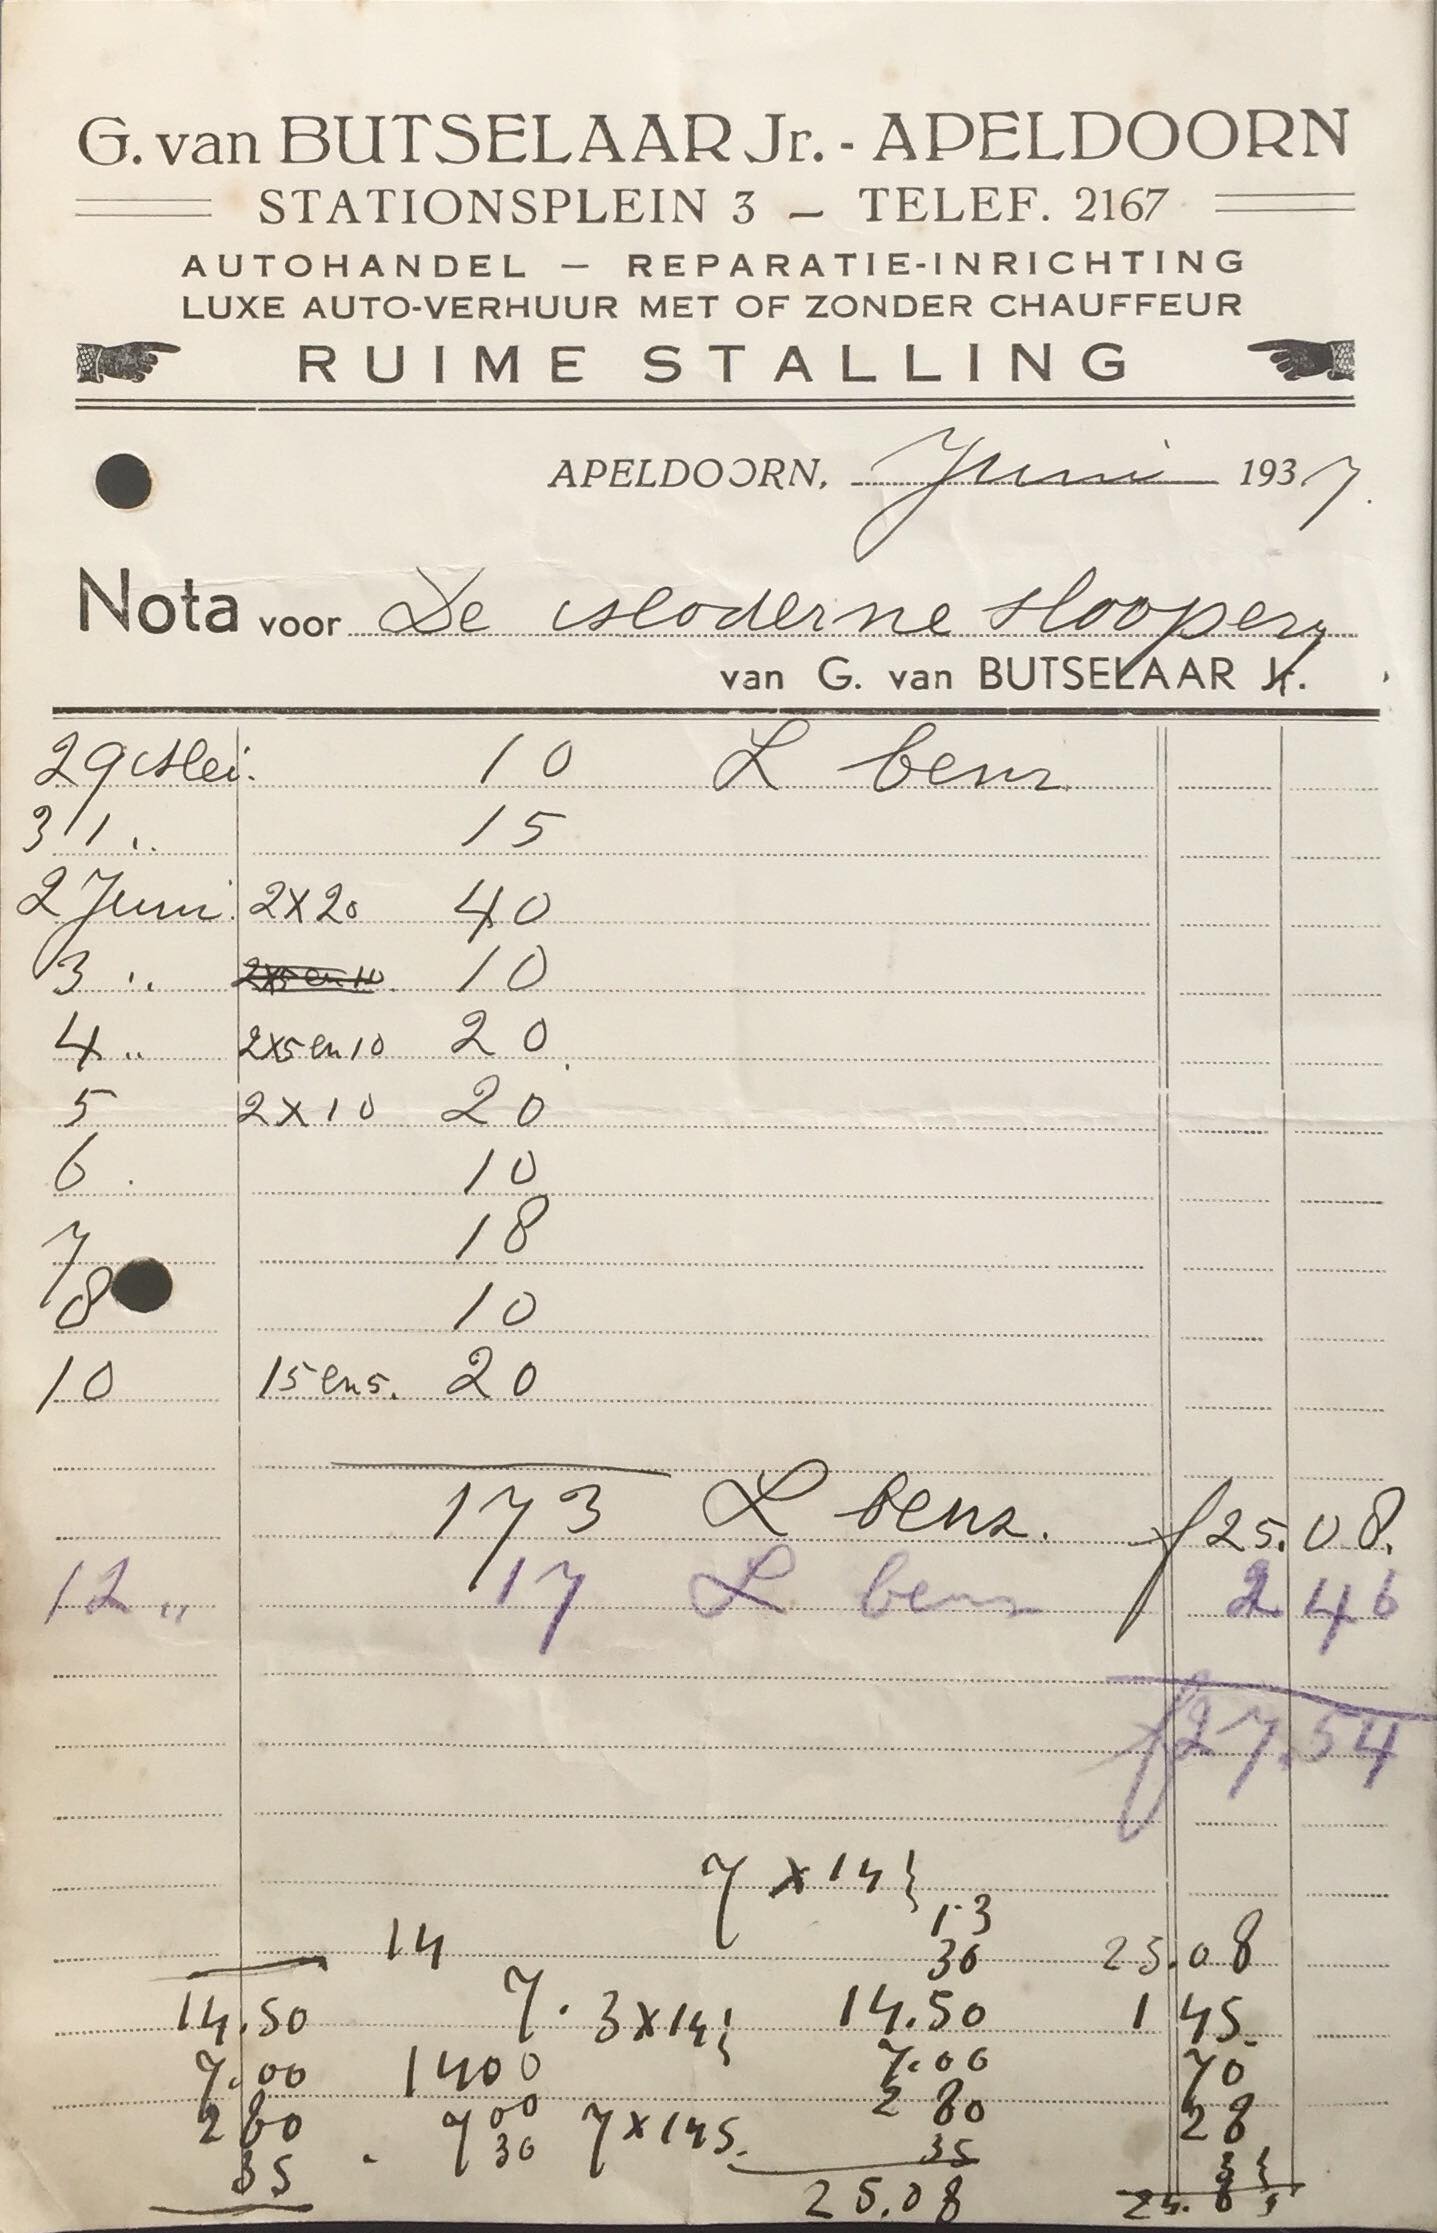 G. van BUTSELAAR Jr. - APELDOORN
STATIONSPLEIN 3 – TELEF. 2167
AUTOHANDEL – REPARATIE-INRICHTING
LUXE AUTO-VERHUUR MET OF ZONDER CHAUFFEUR
RUIME STALLING
APELDOORN, Juni 1937.
Nota voor De Moderne Sloopery
van G. van BUTSELAAR Jr.
29 Mei. 10 L benz.
31 " 15
2 Juni. 2x20 40
3 " 2x5 en 10. 10
4 " 2x5 en 10 20.
5 2x10 20
6 . 10
7 18
8 10
10 15 en 5. 20
173 L benz. f 25.08.
12 " 17 L benz 2 46
f 27.54
7 x 14½
13
14 30 25.08
14.50 7. 3x14½ 14.50 1 45.
7.00 1400 7.00 70
2 80 7 00 2 80 28
30 7x145. 35
35 25.08